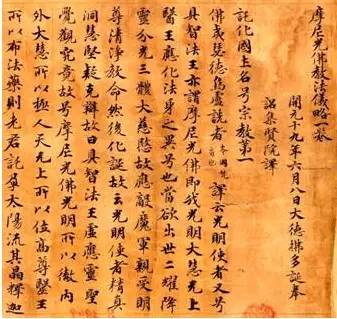 摩尼光佛教法儀略一卷
開元十九年六月八日大德拂多誕奉
詔集賢院譯
託化國主名号宗教第一
佛夷瑟德烏盧詵者本國梵音也譯云光明使者又号
具智法王亦謂摩尼光佛即我光明大慧无上
醫王應化法身之異号也當欲出世二耀降
靈分光三體大慈愍故應敵魔軍親受明
尊清淨教命然後化誕故云光明使者精真
洞慧堅疑克辯故曰具智法王虛應靈聖
覺觀究竟故号摩尼光佛光明所以徹内
外大慧所以極人天无上所以位高尊醫王
所以布法藥則老君託孕太陽流其晶釋迦